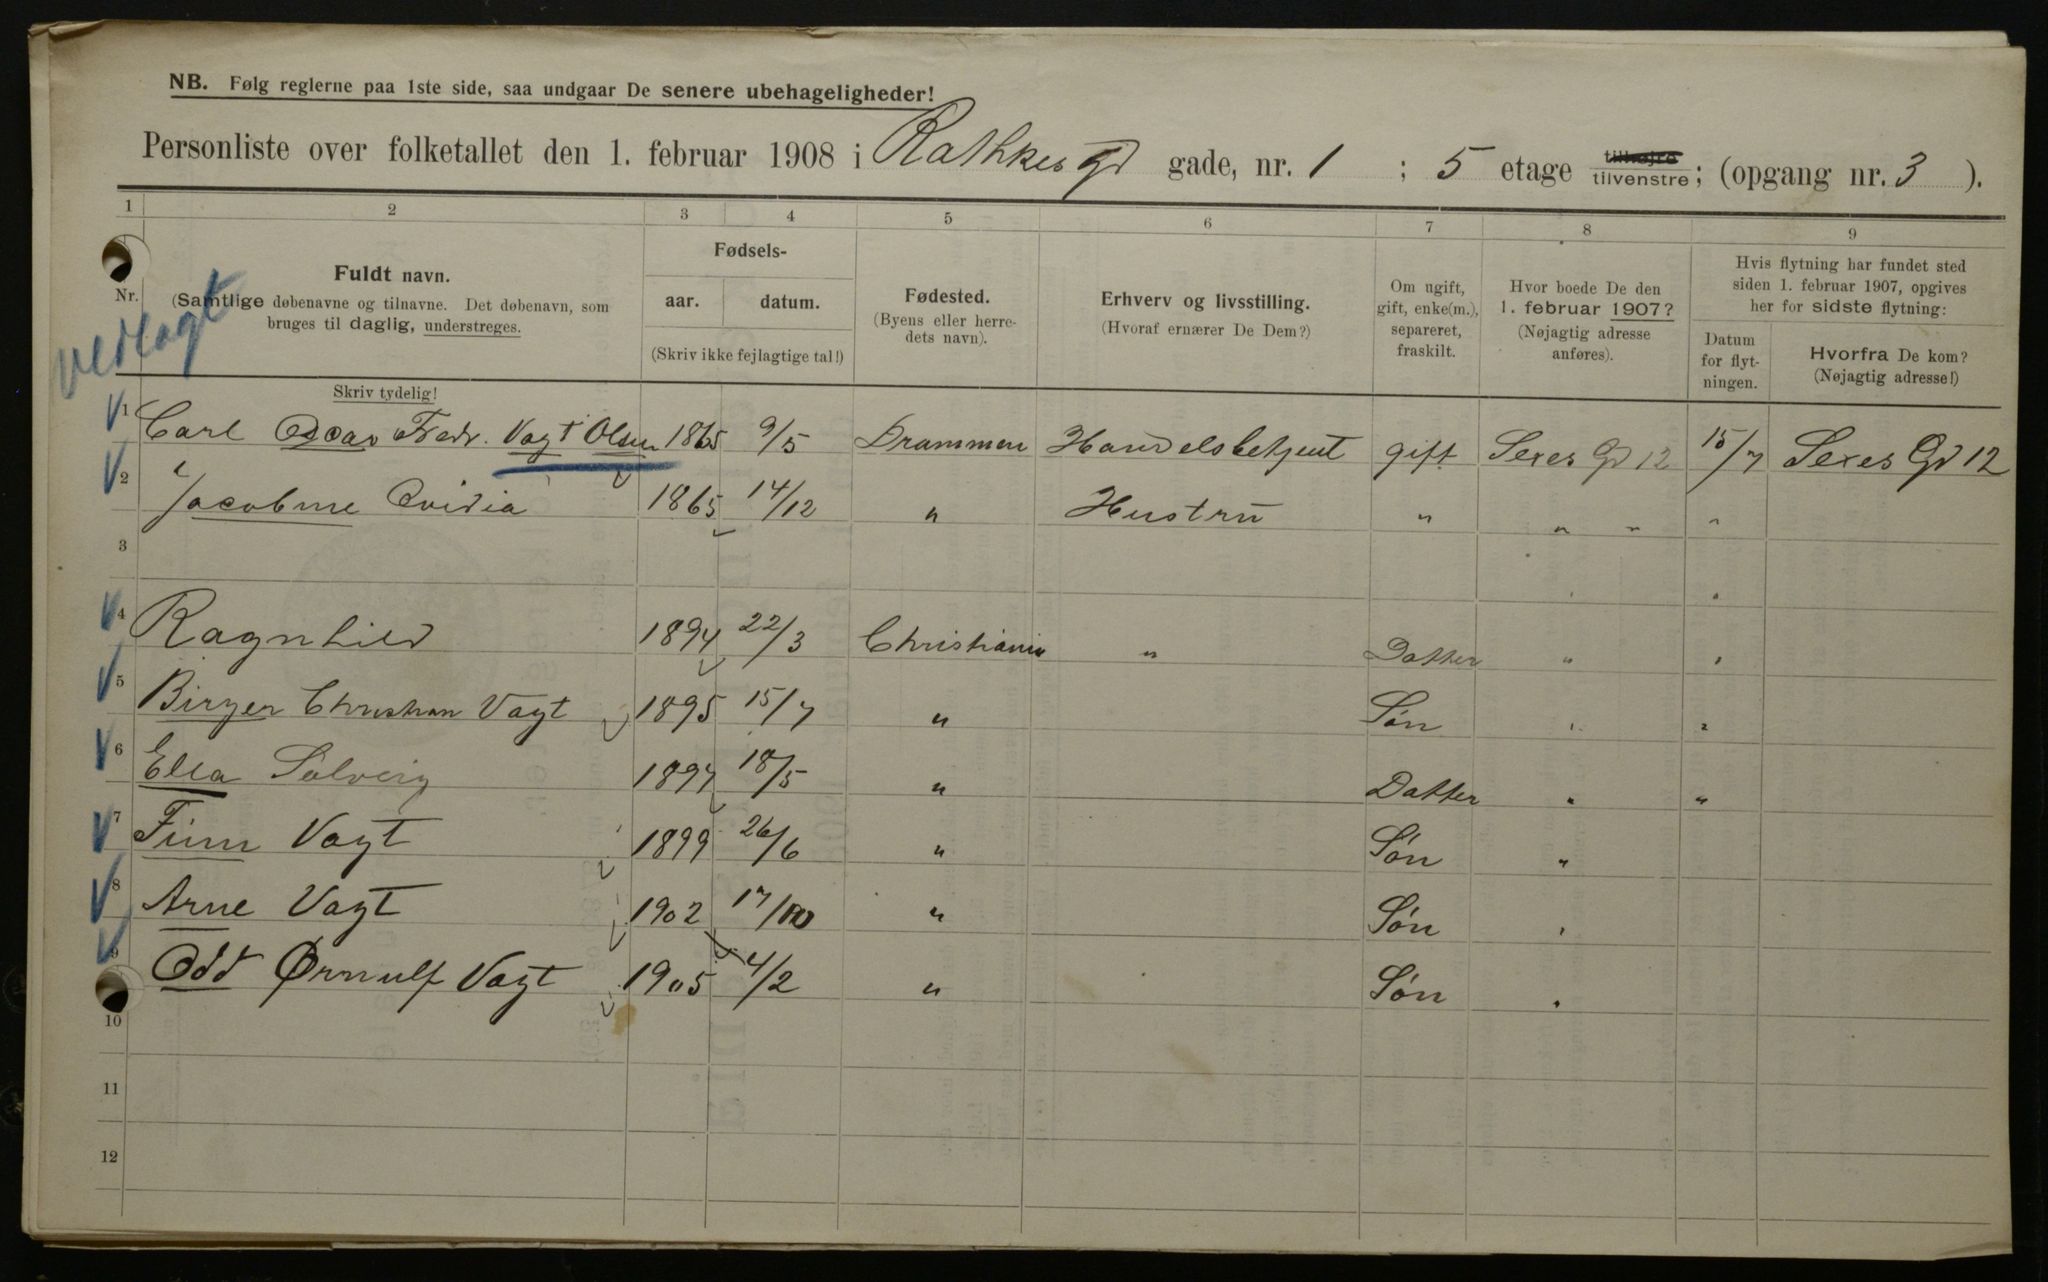 NB. Følg reglerne paa 1ste side, saa undgaar De senere ubehageligheder!
Personliste over folketallet den 1. februar 1908 i Rathkes Gd gade, nr. 1 ; 5 etage tilhøjre tilvenstre; (opgang nr. 3 ).
1 2 3 4 5 6 7 8 9
Nr.
Fuldt navn.
(Samtlige døbenavne og tilnavne. Det døbenavn, som
bruges til daglig, understreges.
Skriv tydelig!
Fødsels-
aar. datum.
(Skriv ikke fejlagtige tal!)
Fødested.
(Byens eller herre-
dets navn).
Erhverv og livsstilling.
(Hvoraf ernærer De Dem?)
Om ugift,
gift, enke(m.),
separeret,
fraskilt.
Hvor boede De den
1. februar 1907?
(Nøjagtig adresse
anføres).
Hvis flytning har fundet sted
siden 1. februar 1907, opgives
her for sidste flytning:
Datum
for flyt-
ningen.
Hvorfra De kom?
(Nøjagtig adresse!)
Vedlagt
1 Carl Oscar Fredr. Vagt Olsen 1865 9/5 Drammen Handelsbetjent gift Sexes Gd 12 15/7 Sexes Gd 12
2 Jacobine Ovidia 1865 14/12 " Hustru " " " "
3 " "
4 Ragnhild 1894 22/3 Christiania " Datter " "
5 Birger Christian Vagt 1895 15/7 " Søn " "
6 Ella Solveig 1897 18/5 " Datter " "
7 Finn Vagt 1899 26/6 " Søn "
8 Arne Vagt 1902 17/10 " Søn "
9 Odd Ørnulf Vagt 1905 4/2 " Søn "
10
11
12